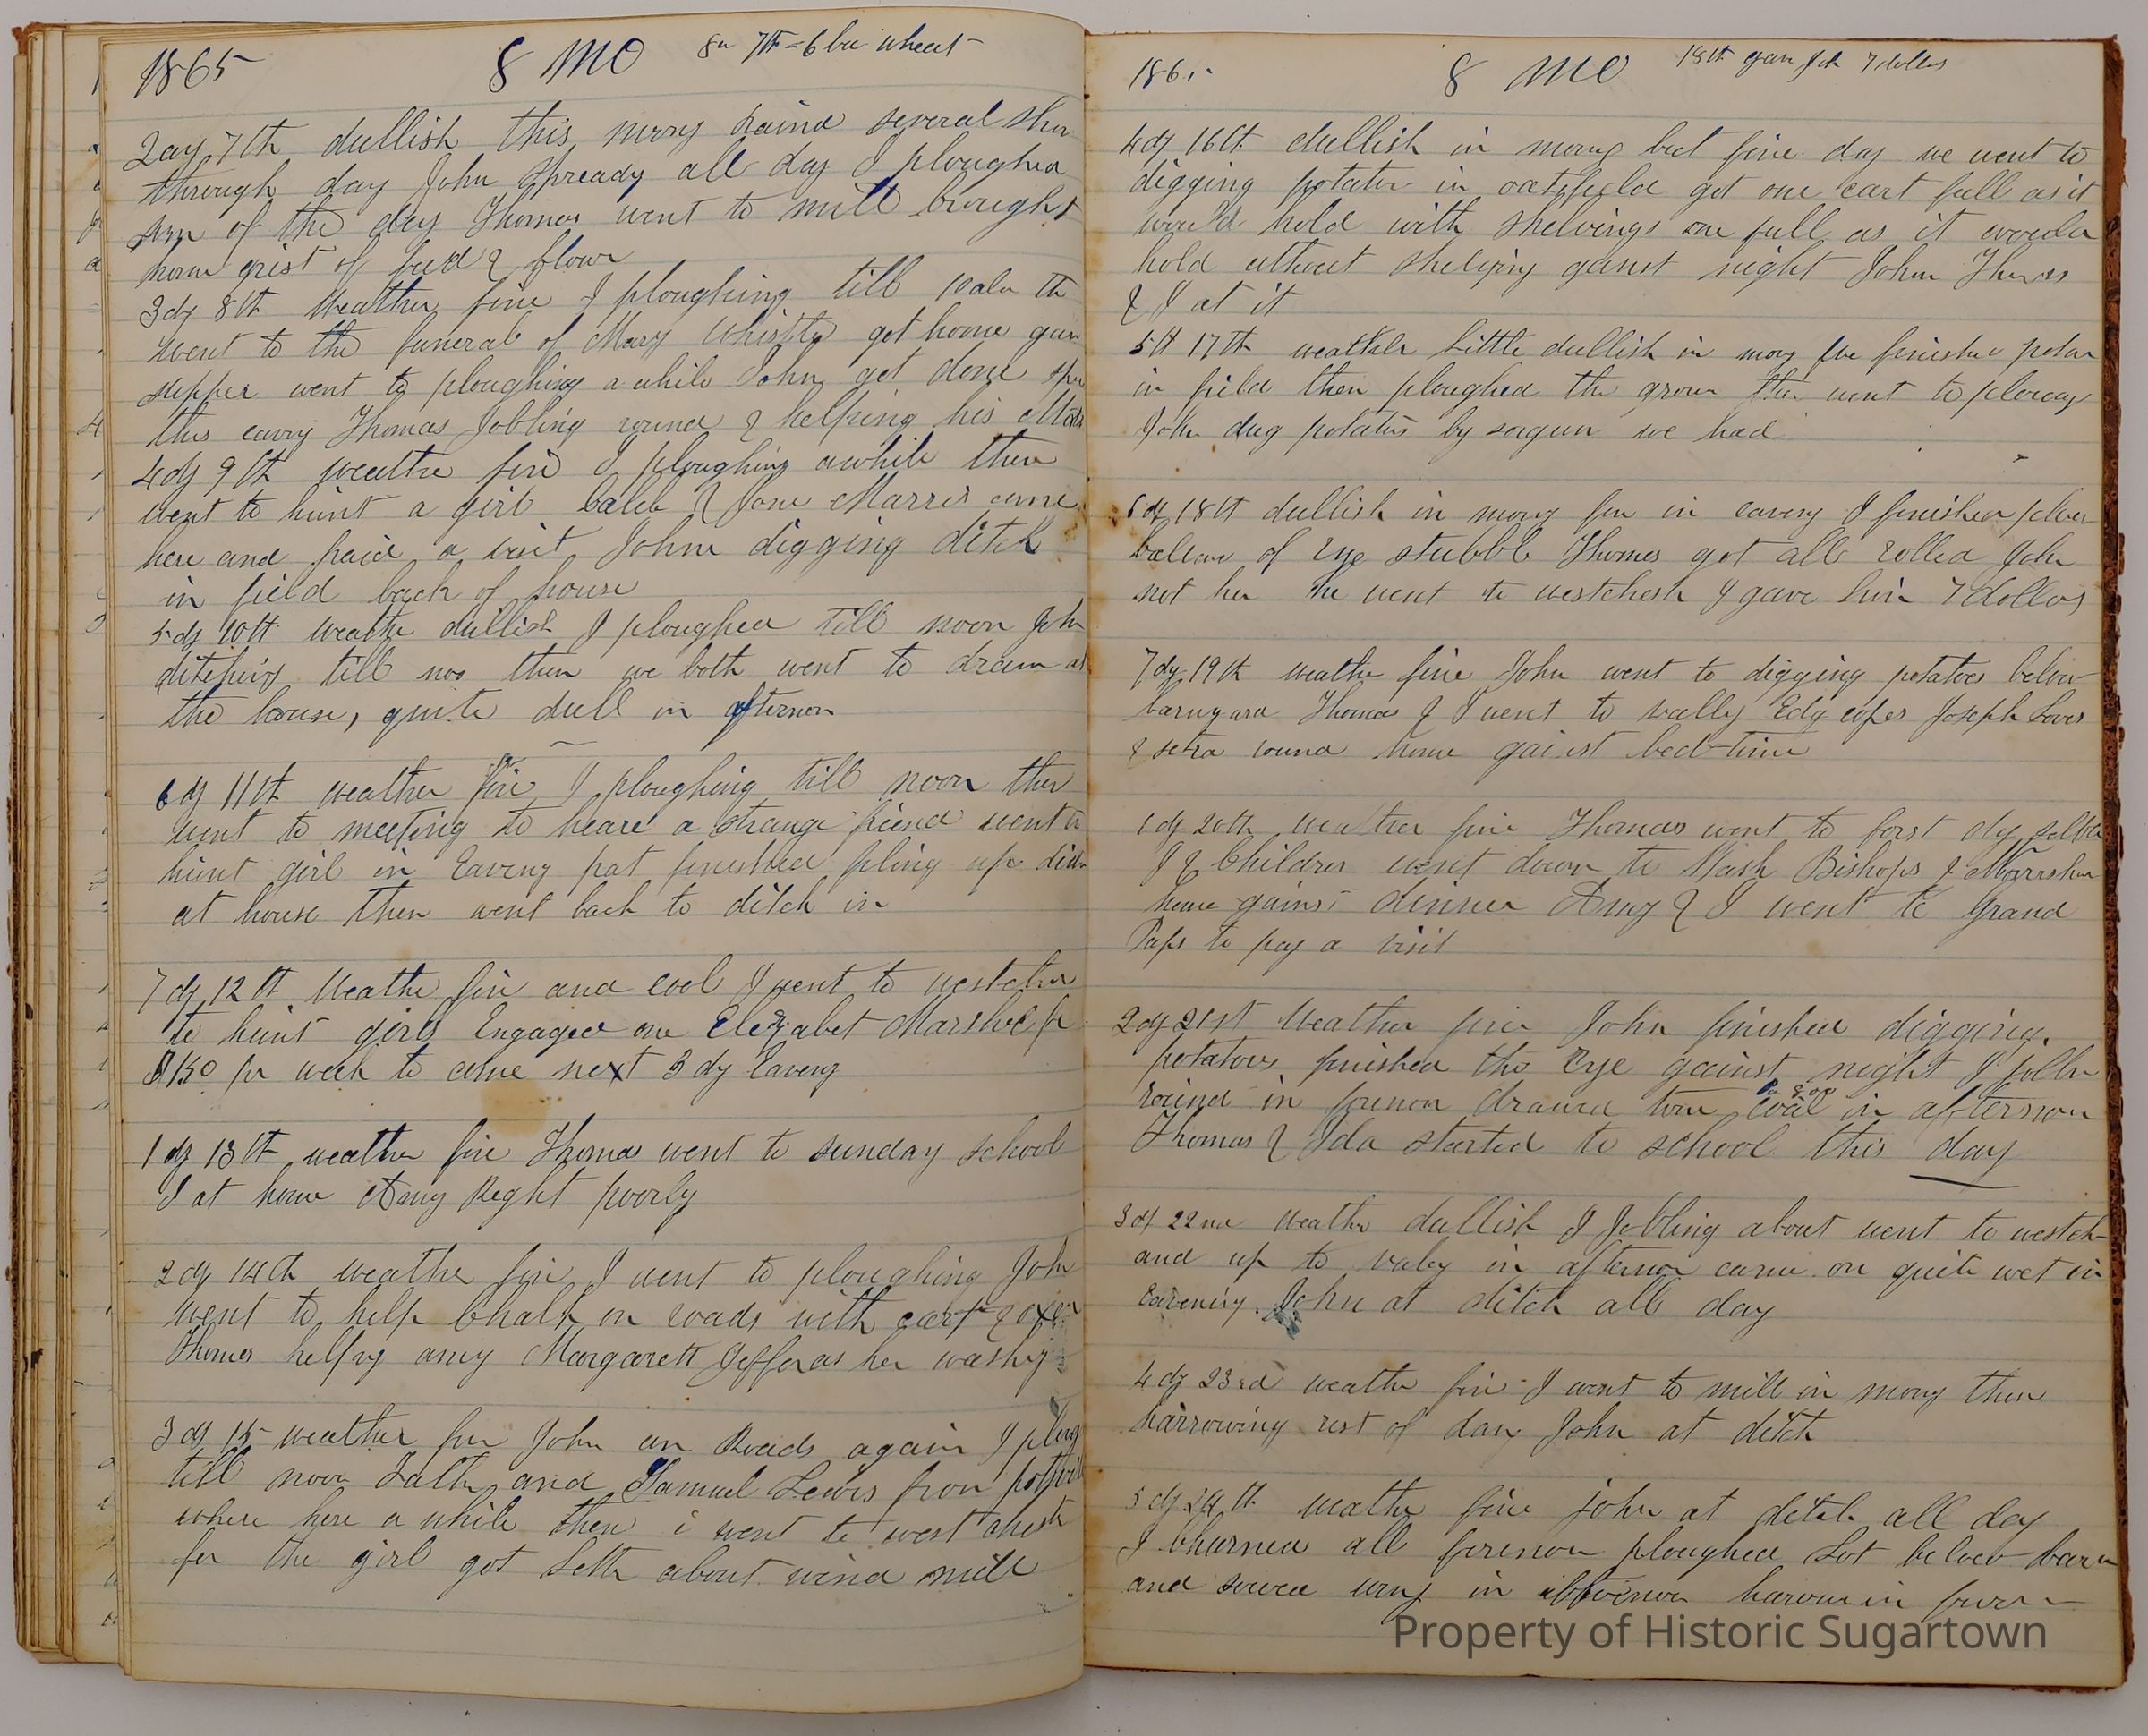 1865 8 MO 8m 7th = 6 bu wheat
2dy 7th dullish this morng raind several
through day John Spready all day I ploughed
sum of the day Thomas went to mill brought
home grist of feed & flour
3dy 8th Weather fine I ploughing till 10 then
went to the funeral of Mary got home
supper went to ploughing a while John got done
this eavng Thomas Jobling round & helping his
4dy 9th weathe fine I ploughing awhile then
went to hunt a girl Caleb & Jane Marris came
here and paid a visit John digging ditch
in field back of house
5dy 10th weathe dullish I ploughed till noon John
ditching till noo then we both went to drain at
the house, quite dull in afternon
6dy 11th weather fine I ploughing till noon then
went to meeting to heare a strange friend went to
hunt girl in Eaveng pat finished up
at house then went back to ditch in
7dy 12th Weathe fin and cool I went to
to hunt girls Engaged one Elezabet
$1.50 pr week to come next 3 dy Eaveng
1dy 13th weather fine Thomas went to sunday school
I at home Amy Right poorly
2dy 14th weathe fine I went to ploughing John
went to help Chalk on roads with cart & oxen
Thomas helping amy Margarett Jefferas her washing
3dy 15 weather fin John on Roads again I
till noon and Samuel Lewis from
where here a while then i went to west chest
for the girl got about wind mill
186 8 MO 18th gave Joh 7 dollas
4dy 16th dullish in morng but fine day we went to
digging potatoes in oatsfield got one cart full as it
would hold with shelvings one full as it woulda
hold without shelving ganst night John Thomas
& I at it
5th 17th weather little dullish in morng we finished
in field then ploughed the then went to
John dug potatoes by we had
6dy 18th dullish in morng fin in eaveng I finished
ballanc of rye stubble Thomas got all rolled John
not her he went to westchesh I gave him 7 dollars
7dy 19th weathe fine John went to digging potatoes below
barnyard Thomas & I went to Edg copes Joseph
& round home gainst bed-time
1dy 20th weather fine Thomas went to forst dy
I & Children went down to Mash Bishops &
home gainst dinner Amy & I went to Grand
Paps to pay a visit
2dy 21st Weather fine John finished digging
potatoes finished the rye gainst night I
round in forenon drawed ton coal in afternoon
Thomas & Ida started to school this day
3dy 22nd Weathe dullish I Jobling about went to westch
and up to in afternon came on quite wet in
Eavening. John at ditch all day
4dy 23rd weathe fine I went to mill in morng then
harrowing rest of day John at ditch
5dy 24th weathe fine john at ditch all day
I Churned all forenon ploughed Lot below barn
and in
Property of Historic Sugartown